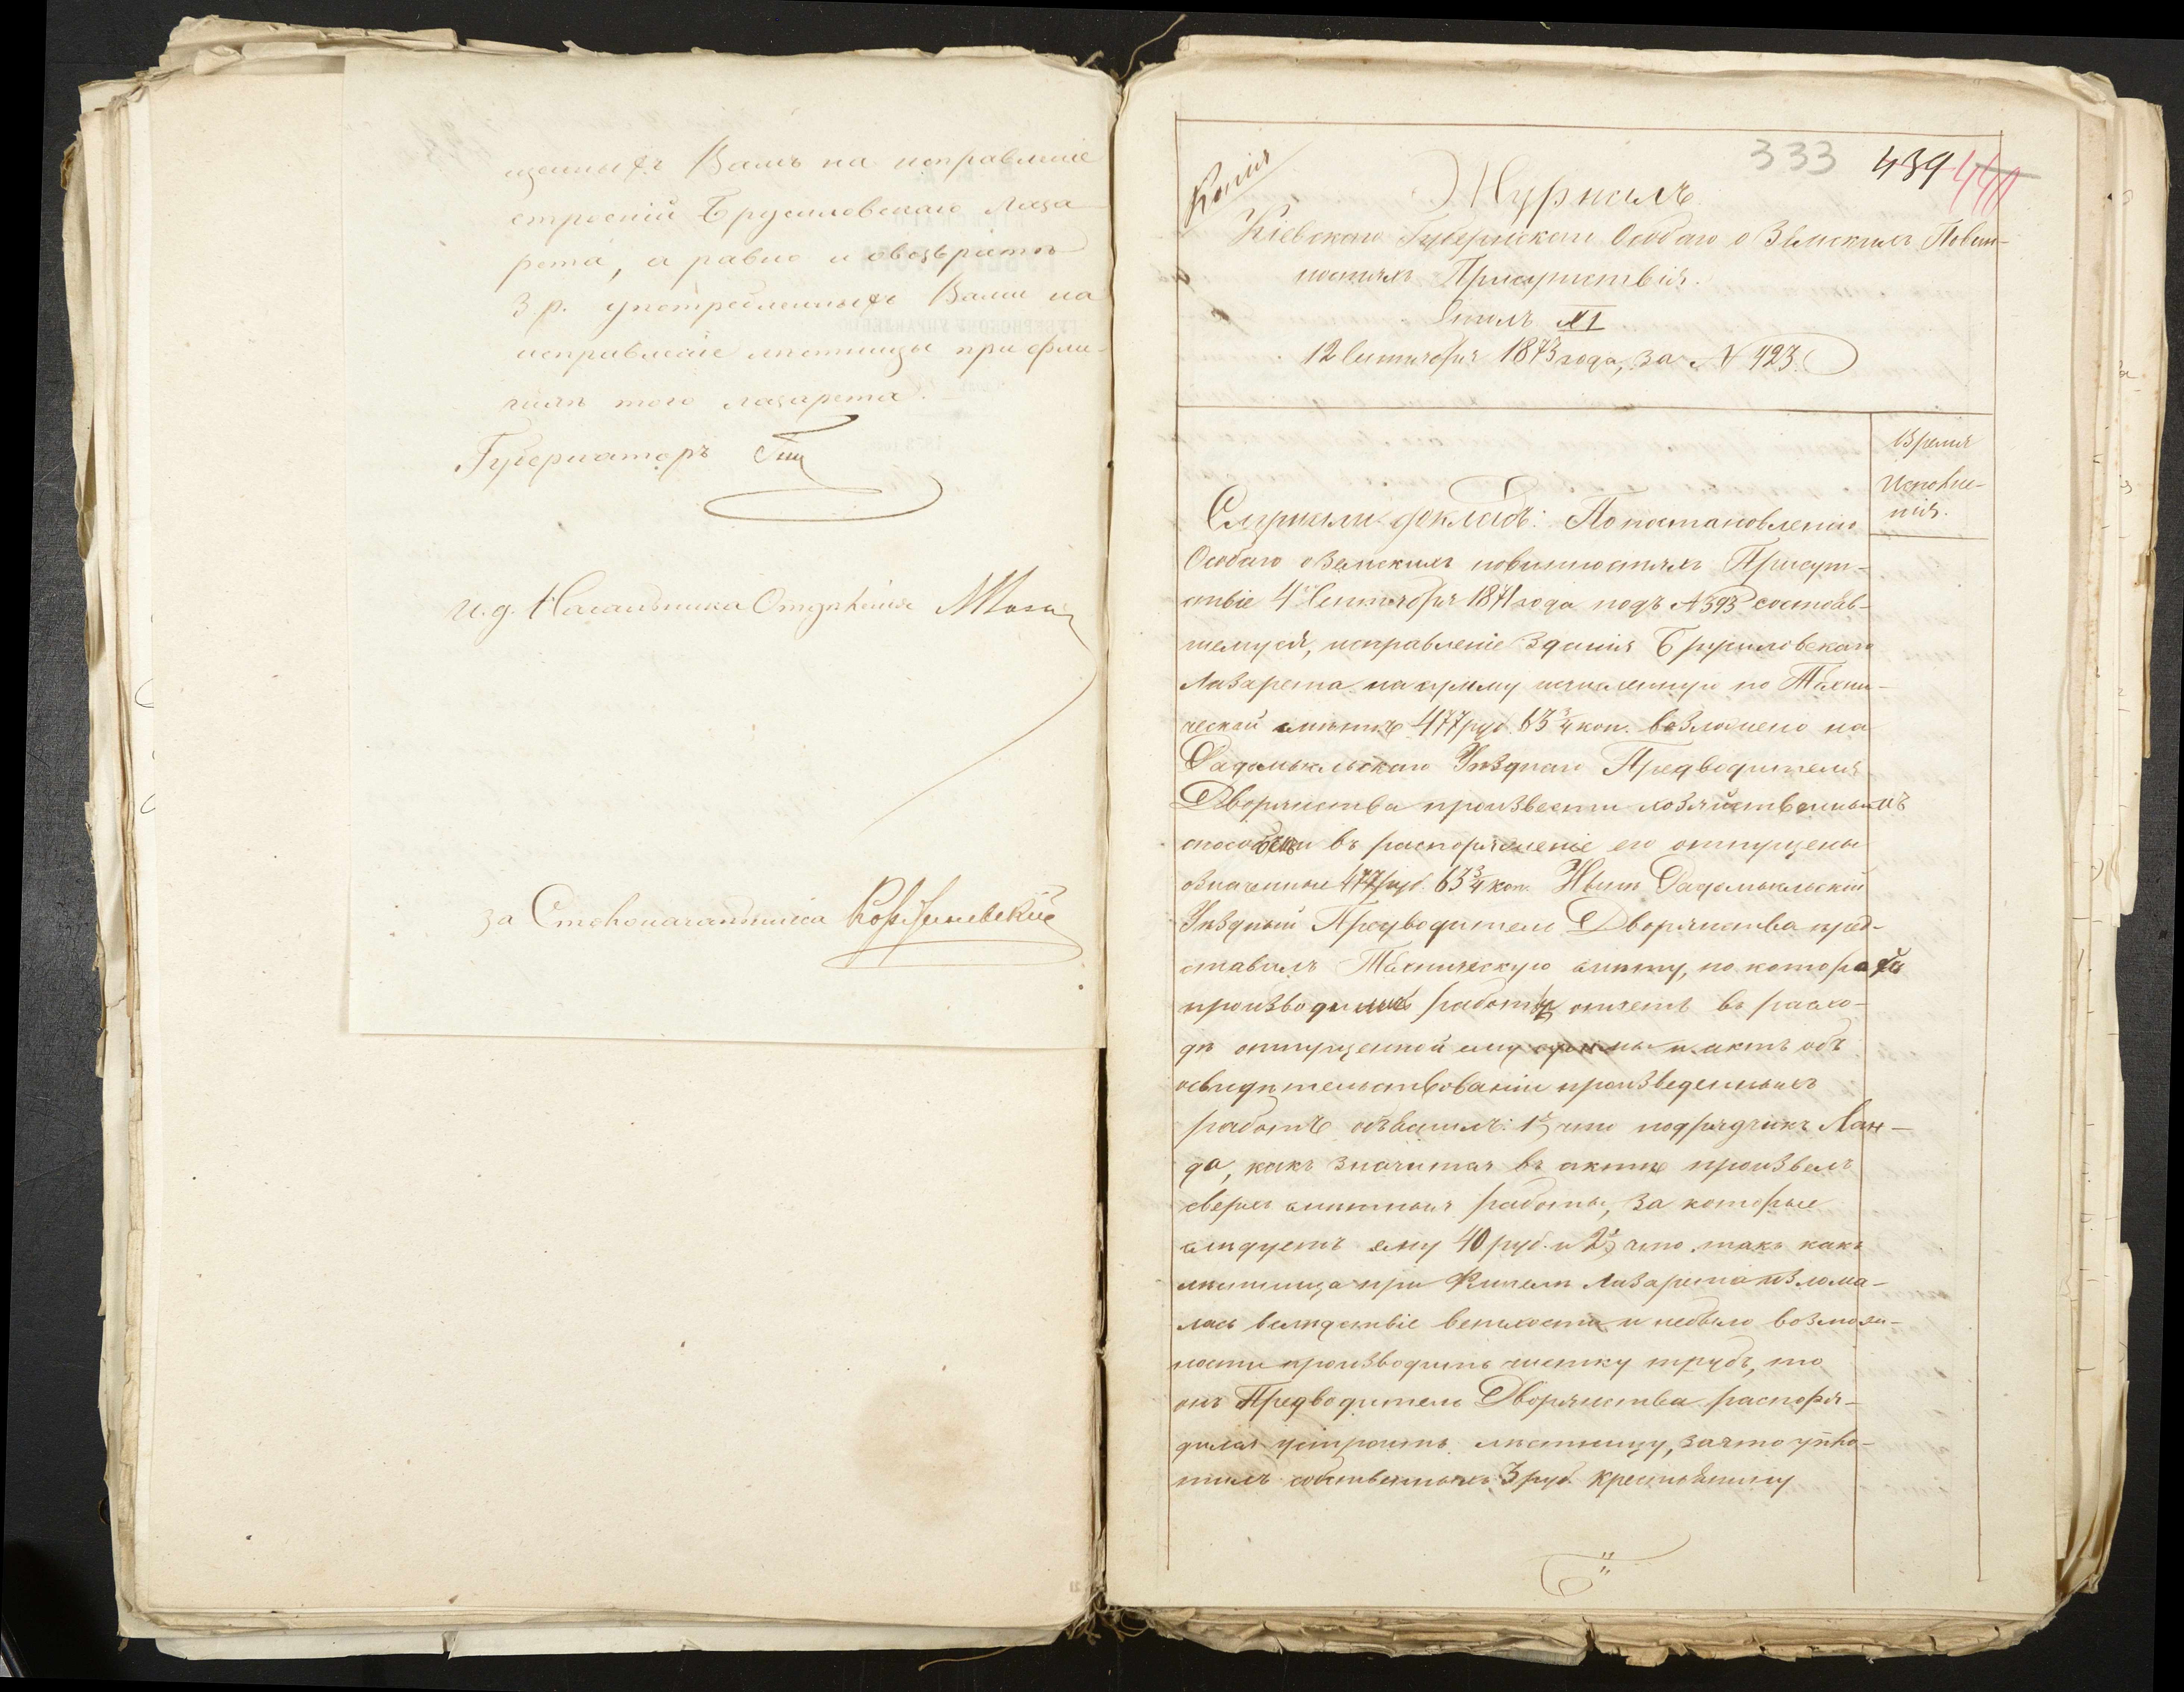 щенныхъ Вамъ на исправленіе
строеній Брусиловскаго Лаза
рета, а равно и овозвратѣ
3 р. употребленныхъ Вами на
исправленіе лѣстницы при фли-
гилѣ того лазарета.
Губернаторъ
И. д. Начальника Отдѣленія
за Столоначальника
333 439 440
Копія
Журналъ
Кіевскаго Губернскаго Особаго о Земскихъ Повин-
ностяхъ Присутствія.
Столъ
12 Сентября 1873 года, за № 423.
Время
Исполне-
нія.
Слушали докладъ: По постановленію
Особаго о Земскихъ повинностяхъ Присут-
ствіе 4 Сентября 1871 года подъ № 393 состояв-
шемуся, исправленіе зданія Брусиловскаго
Лазарета на сумму исчисленную по Техни-
ческой смѣтѣ 477 руб. 63 3/4 коп. возложено на
Радомысльскаго Уѣзднаго Предводителя
Дворянства произвести хозяйственнымъ
способомъ и въ распоряженіе его отпущены
означенные 477 руб. 63 3/4 коп. Нынѣ Радомысльскій
Уѣздный Предводитель Дворянства пред-
ставилъ Техническую смѣту, по которой
производились работы, отчетъ въ расхо-
дѣ отпущенной ему суммы и актъ объ
освидѣтельствованіи произведенныхъ
работъ объяснилъ: 1) что подрядчикъ Лан-
да, какъ значится въ актѣ произвелъ
сверхъ смѣтныя работы, за которые
слѣдуетъ ему 40 руб. и 2) что такъ какъ
лѣстница при Флигелѣ Лазарета изломa-
лась вслѣдствіе ветхости и небыло возмож-
ности производить чистку трубъ, то
онъ Предводитель Дворянства распоря-
дился устроить лѣстницу, зачто упла-
тилъ собственныхъ 3 руб. крестьянину